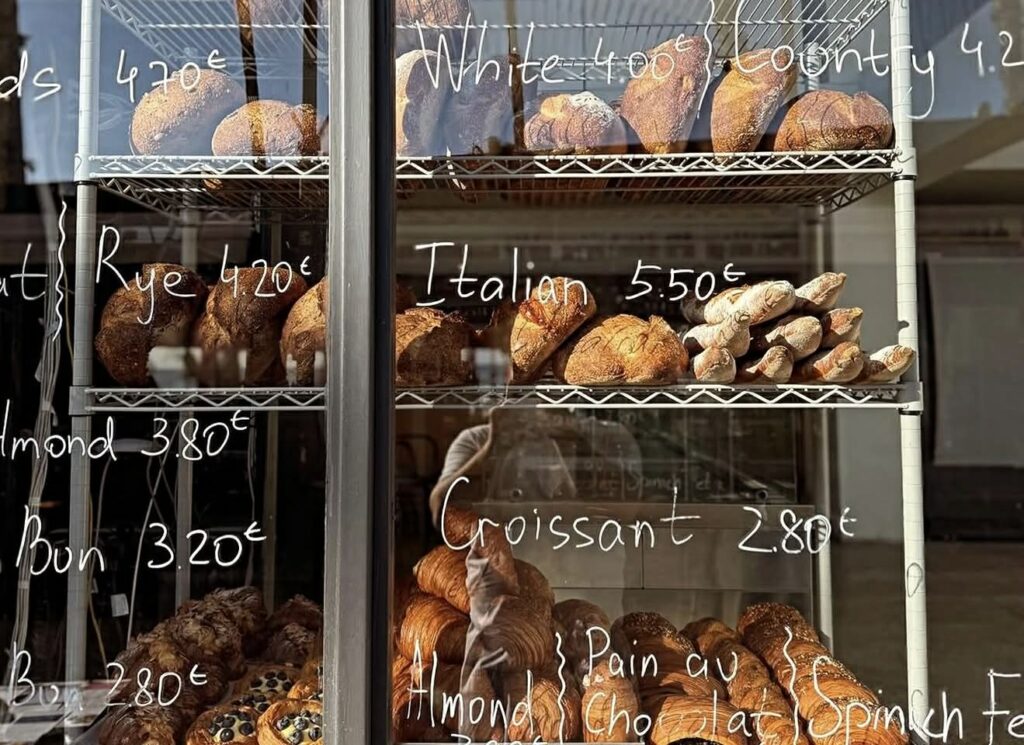 ds 4.70€ White 4.00€ } Country 4.2
at } Rye 4.20€ Italian 5.50€
Almond 3.80€
Bon 3.20€ Croissant 2.80€
Bon 2.80€ Almond } Pain au Chocolat } Spinach Fe